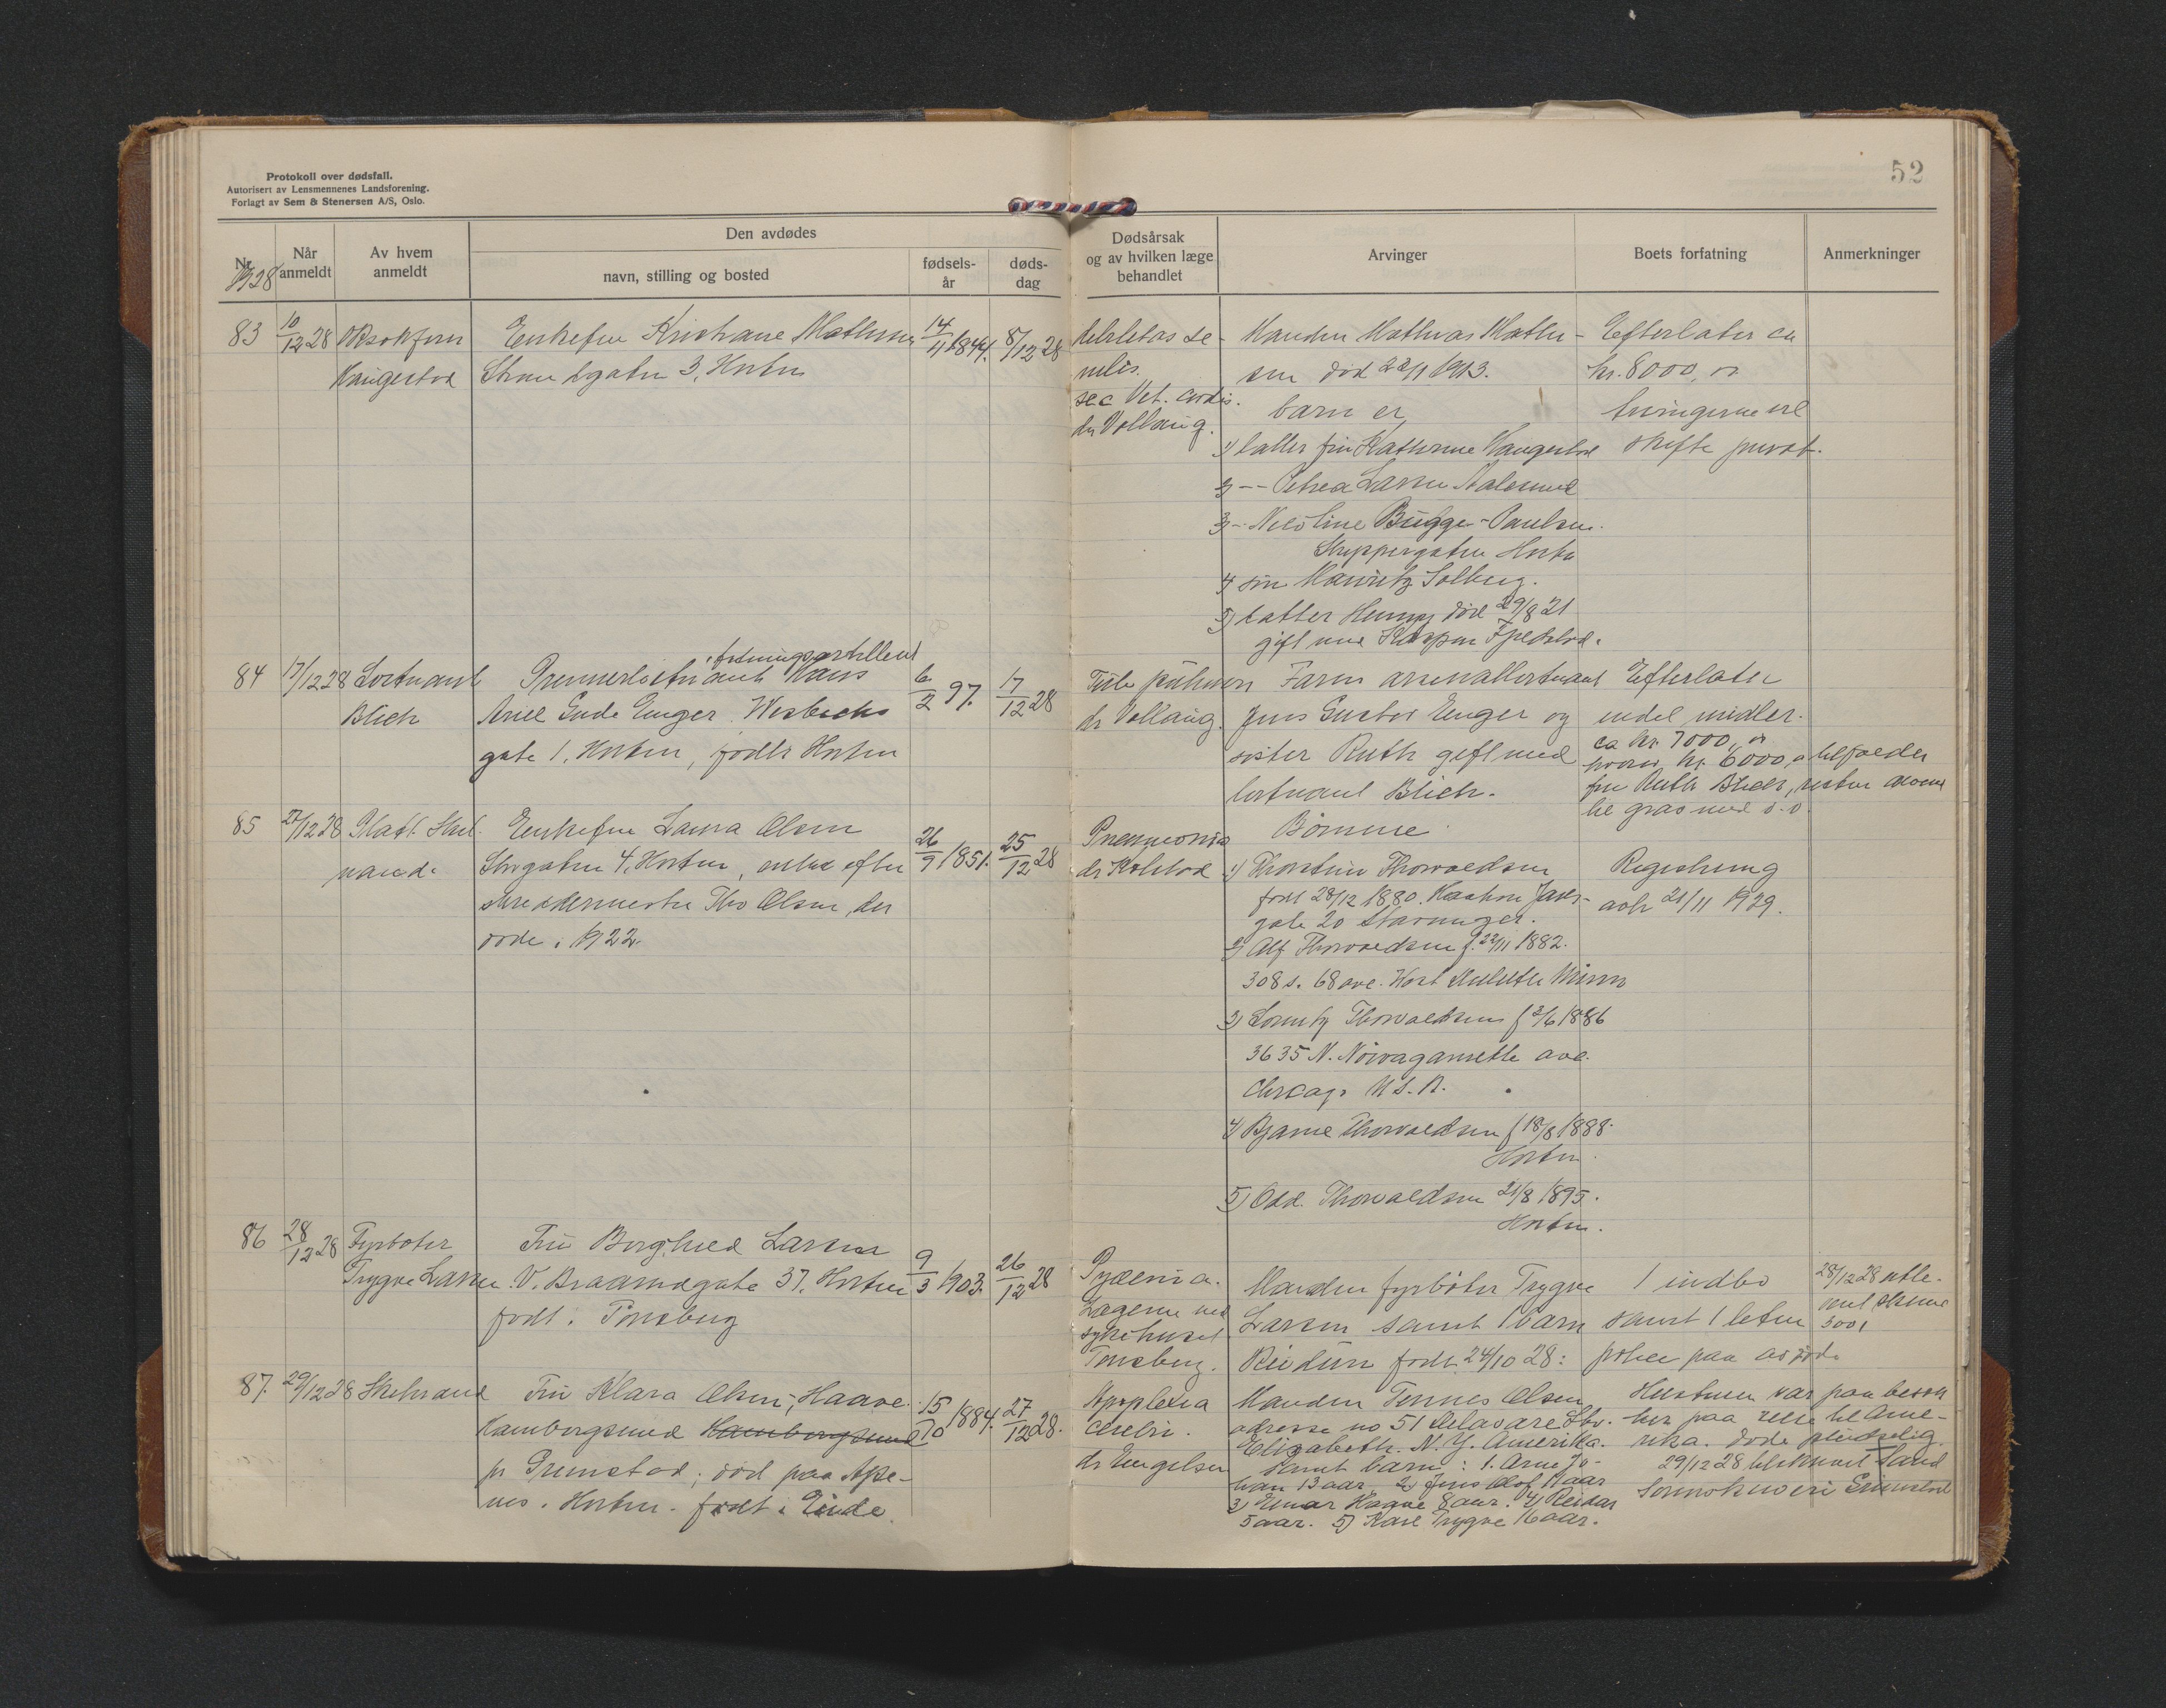 Protokoll over dødsfall.
Autorisert av Lensmennenes Landsforening.
Forlagt av Sem & Stenersen A/S, Oslo.
52
Nr.
1928
Når anmeldt
Av hvem anmeldt
Den avdødes
navn, stilling og bosted
fødsels-år
døds-dag
Dødsårsak og av hvilken læge behandlet
Arvinger
Boets forfatning
Anmerkninger
83 10/12 28
Kaugerød
Enkefru Kristiane Mathisen 14/11 1844. 8/12 28
Strandgaten 3, Horten
senilis
sec Vit. cordis.
dr Vollaug.
Manden Mathias Mathi-
sen død 22/11 1913.
barn er
1) datter fru Kathrine Haugerød
2) -- Petrea Larsen Aalesund
3) -- Nicoline Bugge-Paulsen.
Skippergaten Horten
4) søn Mauritz Solberg.
5) datter Henny død 29/8 21
gift med Kaspar
Efterlater ca
kr. 8000,
arvingerne vil
skifte privat.
84 17/12 28 Løitnant
Blich
Premierløitnant Hans
Ariel Gude Enger Wesbecks
gate 1, Horten, født i Horten
6/2 97. 17/12 28
dr Vollaug.
Faren arsenalløitnant
Jens Gustav Enger og
søster Ruth gift med
løitnant Blich.
Efterlater
endel midler.
ca kr. 7000,
hvorav kr. 6000, tilfalder
fru Ruth Blich, resten
til gravsted o.s.v.
85 27/12 28 Matt.
Enkefru Laura Olsen
Storgaten 4, Horten, enke efter
skreddermester Tho Olsen, der
døde i 1922.
26/9 1851. 25/12 28
Pneumonia
dr Kolstad
Børnene
1) Thorstein Thorvaldsen
født 28/12 1880.
gate 20 Stavanger.
2) Alf Thorvaldsen f. 22/11 1882.
308 s. 68 ave. West Duluth Minn
3) Thorvaldsen f 2/6 1886
3635 N. Narragansette ave.
Chicago U.S.A.
4) Bjarne Thorvaldsen f 18/8 1888.
Horten.
5) Odd Thorvaldsen 21/8 1895.
Horten.
Registrering
avh 21/11 1929.
86 28/12 28 Fyrbøter
Trygve Larsen
Fru Borghild Larsen
V. Braarudgate 37, Horten
født i Tønsberg
9/3 1903. 26/12 28
Pyæmia.
Lægerne ved
sykehuset
Tønsberg.
Manden fyrbøter Trygve
Larsen samt 1 barn
Reidun født 24/10 28:
1 indbo
samt 1 liten
police paa avdøde
28/12 28 utle-
vert skema
3001
87. 29/12 28
Fru Klara Olsen, Haave.
Hamborgsund Hamborgsund
pr Grimstad; død paa Apenes
i Horten. født i Eide.
15/10 1884. 27/12 28.
Apoplexia
cerebri.
dr Engelsen
Manden Tønnes Olsen
adresse no 51 Delavare Str.
Elizabeth. N.Y. Amerika.
samt barn: 1. Arne Jo-
han 13 aar, 2) Jens Olaf 11 aar
3) Einar Haave 8 aar. 4) Reidar
5 aar. 5) Kaare Trygve 16 aar.
Hustruen var paa besøk
her paa reise til Ame-
rika. døde pludselig.
29/12 28 tilskrevet Sand
Sorenskriveri Grimstad